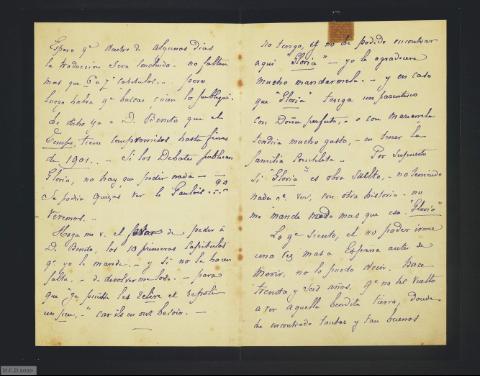 Espero q. dentro de algunos dias
la traduccion sera concluida. no faltan
mas que 6 u 7 capitulos. — pero
luego habra q. buscar quien lo publique.
he dicho ya a D. Benito que el
Temps tiene compromisos hasta fines
de 1901. — Si los Debates publican
Gloria, no hay que pedir nada —
Se podria quizas ver le Gaulois
veremos. —
Haga me v. el favor de pedir á
D. Benito, los 10 primeros capitulos
q. yo le mande — y si no le hacen
falta, de devolvermelos. — para
que yo pueda les relire et refaire
un peu, — car ils en ont besoin. —
no tengo, y no he podido encontrar
aqui "Gloria" — yo le agradecere
mucho mandarmela. — y en caso
que "Gloria" tenga un parentesco
con Doña perfecta, — o con Marianela
tendria mucho gusto, en tener la
familia completa. — Por supuesto
si "Gloria" es obra suelta, no teniendo
nada q. ver, con otra historia. no
me mande nada mas que esa "Gloria"
Lo q. siento, el no poder irme
una vez mas a España antes de
morir. no lo puedo decir. Hace
treinta y seis años, q. no he vuelto
a ver aquella bendita tierra, donde
he encontrado tantos y tan buenos